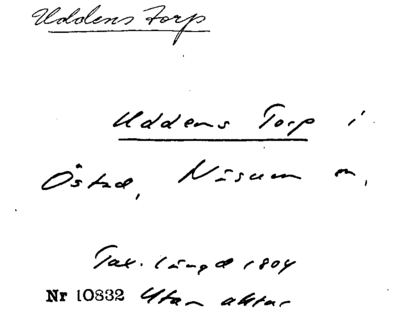 Uddens torp
Uddens Torp i
Östad, Näsum sn,
Tax. längd 1804
Nr 10832 Utan aktar